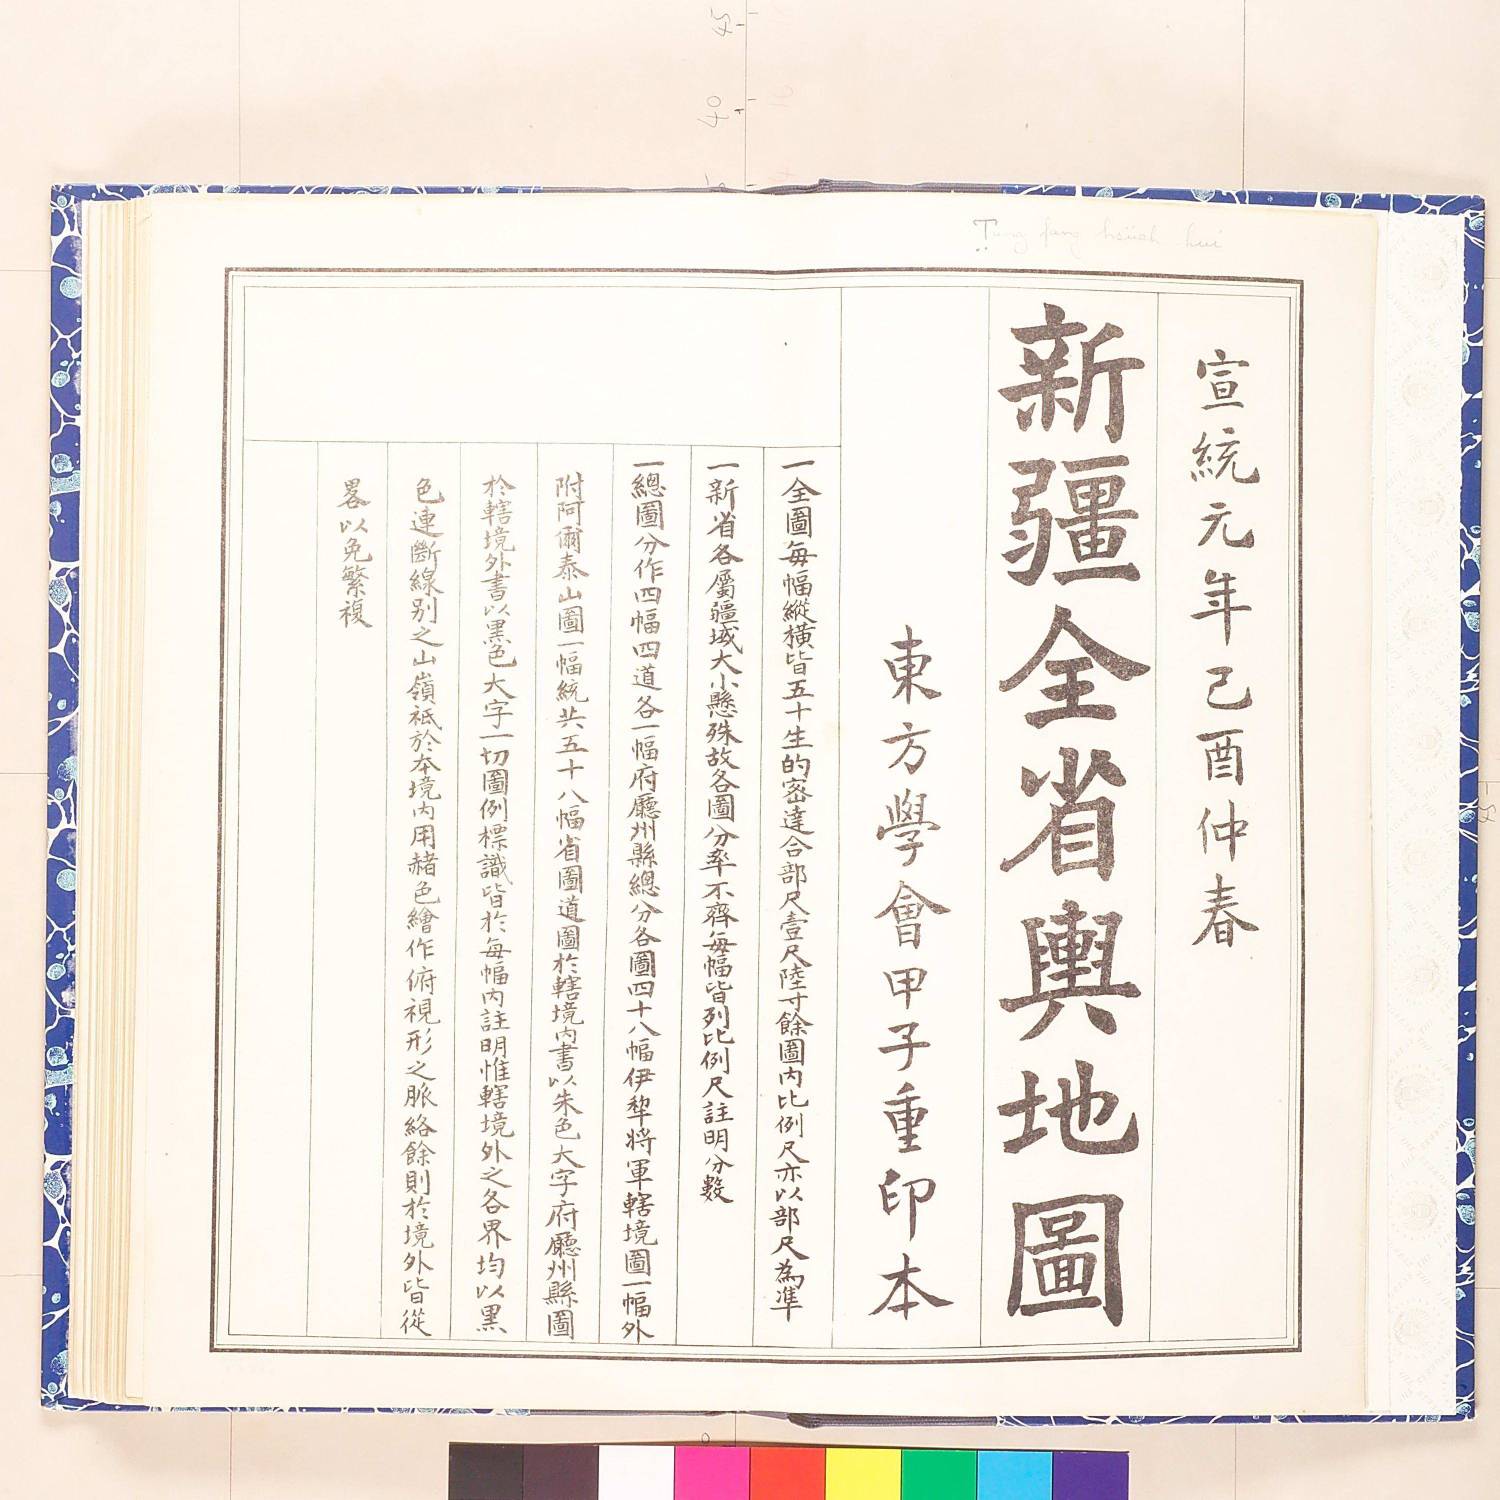 Tung fang hsüeh hui
宣統元年己酉仲春
新疆全省輿地圖
東方學會甲子重印本
一全圖每幅縱橫皆五十生的密達合部尺壹尺陸寸餘圖內比例尺亦以部尺為準
一新省各屬疆域大小懸殊故各圖分率不齊每幅皆列比例尺註明分數
一總圖分作四幅四道各一幅府廳州縣總分各圖四十八幅伊犂將軍轄境圖一幅外
附阿爾泰山圖一幅統共五十八幅省圖道圖於轄境內書以朱色大字府廳州縣圖
於轄境外書以黑色大字一切圖例標識皆於每幅內註明惟轄境外之各界均以黑
色連斷線別之山嶺祇於本境內用赭色繪作俯視形之脈絡餘則於境外皆從
畧以免繁複